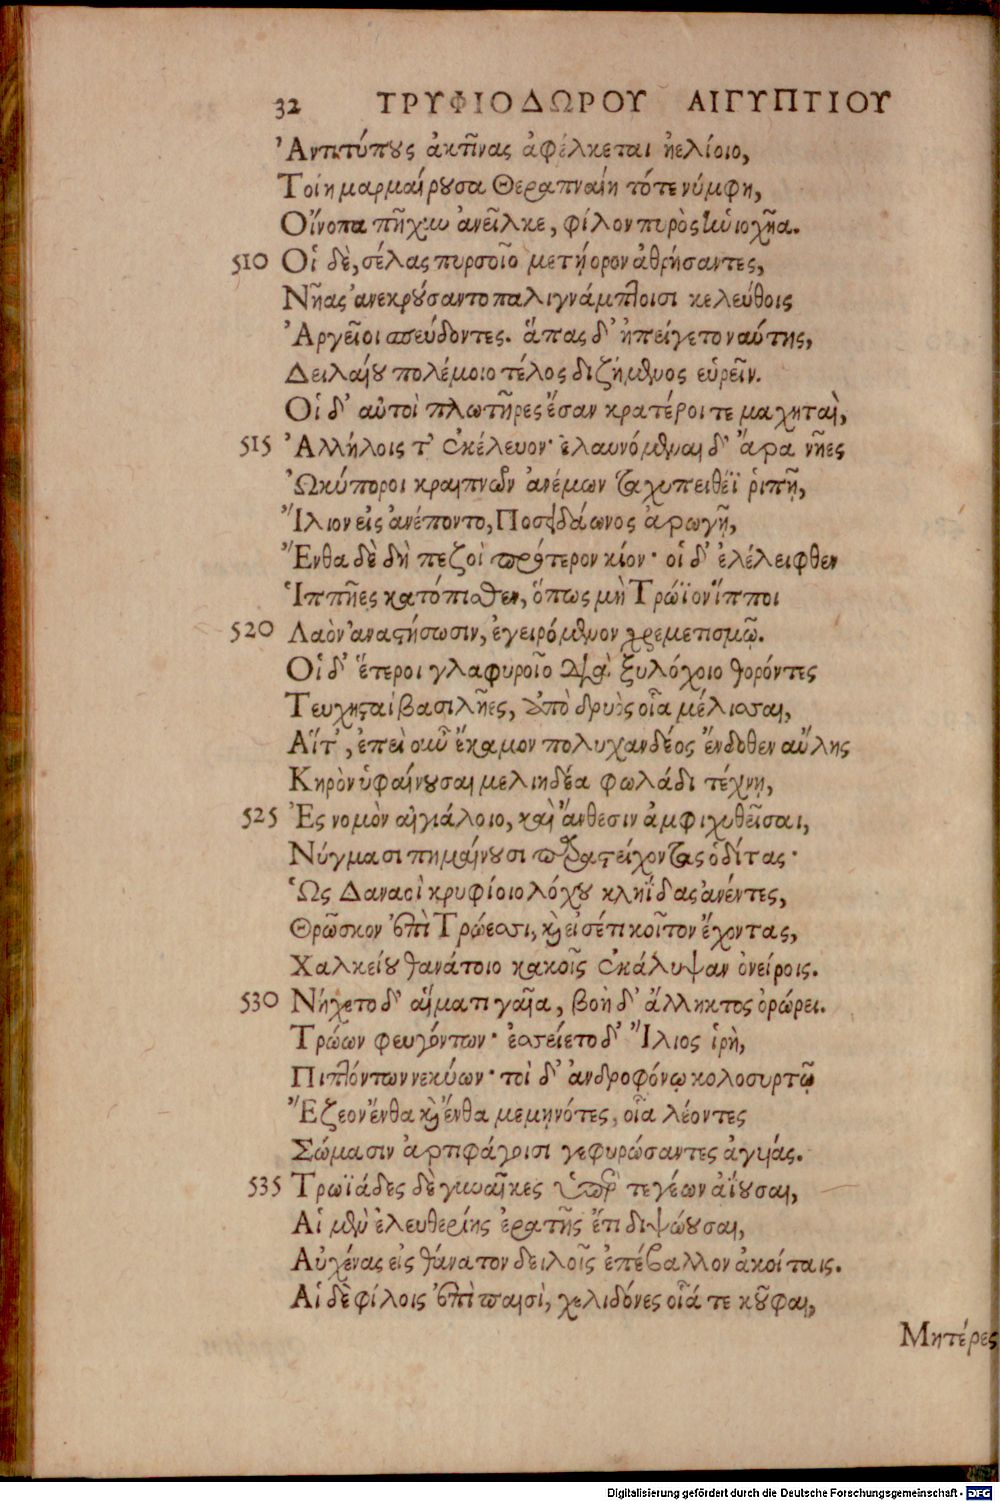 32 ΤΡΥΦΙΟΔΩΡΟΥ ΑΙΓΥΠΤΙΟΥ
Ἀντιτύπους ἀκτῖνας ἀφέλκεται ἠελίοιο,
Τοίη μαρμαίρουσα Θεραπναίη τότε νύμφη,
Οἴνοπα πῆχυν ἀνεῖλκε, φίλον πυρὸς ἡνιοχῆα.
510 Οἱ δὲ, σέλας πυρσοῖο μετήορον ἀθρήσαντες,
Νῆας ἀνεκρούσαντο παλιγνάμπτοισι κελεύθοις
Ἀργεῖοι σπεύδοντες. ἅπας δ' ἠπείγετο ναύτης,
Δειλαίου πολέμοιο τέλος διζήμενος εὑρεῖν.
Οἱ δ' αὐτοὶ πλωτῆρες ἔσαν κρατέροι τε μαχηταὶ,
515 Ἀλλήλοις τ' ἐκέλευον· ἐλαυνόμεναι δ' ἄρα νῆες
Ὠκύποροι κραιπνῶν ἀνέμων ταχυπειθέϊ ῥιπῇ,
Ἴλιον εἰς ἀνέποντο, Ποσειδάωνος ἀρωγῇ,
Ἔνθα δὲ δὴ πεζοὶ πρότερον κίον· οἱ δ' ἐλέλειφθεν
Ἱππῆες κατόπισθεν, ὅπως μὴ Τρώϊον ἵπποι
520 Λαὸν ἀναστήσωσιν, ἐγειρόμενον χρεμετισμῷ.
Οἱ δ' ἕτεροι γλαφυροῖο διὰ ξυλόχοιο θορόντες
Τευχησταὶ βασιλῆες, ἀπὸ δρυὸς οἷα μέλισσαι,
Αἵτ', ἐπεὶ οὖν ἔκαμον πολυχανδέος ἔνδοθεν αὔλης
Κηρὸν ὑφαίνουσαι μελιηδέα φωλάδι τέχνῃ,
525 Ἐς νομὸν αἰγιάλοιο, καὶ ἄνθεσιν ἀμφιχυθεῖσαι,
Νύγμασι πημαίνουσι παραστείχοντας ὁδίτας·
Ὣς Δαναοὶ κρυφίοιο λόχου κληῖδας ἀνέντες,
Θρῶσκον ἐπὶ Τρώεσσι, καὶ εἰσέτι κοῖτον ἔχοντας,
Χαλκείου θανάτοιο κακοῖς ἐκάλυψαν ὀνείροις.
530 Νήχετο δ' αἵματι γαῖα, βοὴ δ' ἄλληκτος ὀρώρει.
Τρώων φευγόντων· ἐσσείετο δ' Ἴλιος ἱρὴ,
Πιπτόντων νεκύων· τοὶ δ' ἀνδροφόνῳ κολοσυρτῷ
Ἔζεον ἔνθα καὶ ἔνθα μεμηνότες, οἷα λέοντες
Σώμασιν ἀρτιφάτοισι γεφυρώσαντες ἀγυιάς.
535 Τρωϊάδες δὲ γυναῖκες ὑπὲρ τεγέων ἀΐουσαι,
Αἱ μὲν ἐλευθερίης ἐρατῆς ἔτι διψώουσαι,
Αὐχένας εἰς θάνατον δειλοῖς ἐπέβαλλον ἀκοίταις.
Αἱ δὲ φίλοις ἐπὶ παισὶ, χελιδόνες οἷά τε κοῦφαι,
Μητέρες
Digitalisierung gefördert durch die Deutsche Forschungsgemeinschaft - DFG